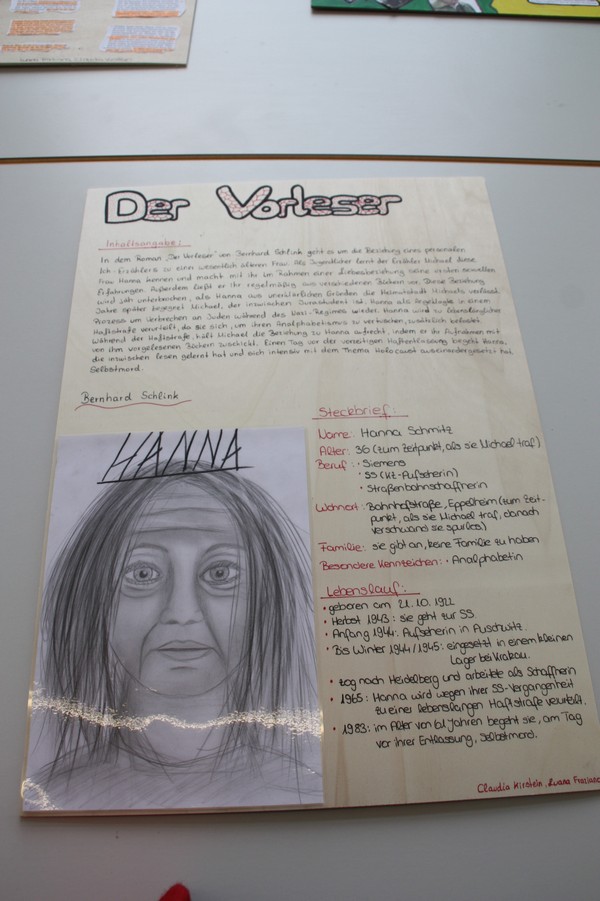 Der Vorleser
Inhaltsangabe:
In dem Roman „Der Vorleser" von Bernhard Schlink geht es um die Beziehung eines personalen
Ich-Erzählers zu einer wesentlich älteren Frau. Als Jugendlicher lernt der Erzähler Michael diese
Frau Hanna kennen und macht mit ihr im Rahmen einer Liebesbeziehung seine ersten sexuellen
Erfahrungen. Außerdem ließt er ihr regelmäßig aus verschiedenen Büchern vor. Diese Beziehung
wird jäh unterbrochen, als Hanna aus unerklärlichen Gründen die Heimatstadt Michaels verlässt.
Jahre später begegnet Michael, der inzwischen Jurastudent ist, Hanna als Angeklagte in einem
Prozess um Verbrechen an Juden während des Nazi-Regimes wieder. Hanna wird zu lebenslänglicher
Haftstrafe verurteilt, da sie sich, um ihren Analphabetismus zu vertuschen, zusätzlich belastet.
Während der Haftstrafe, hält Michael die Beziehung zu Hanna aufrecht, indem er ihr Aufnahmen mit
von ihm vorgelesenen Büchern zuschickt. Einen Tag vor der vorzeitigen Haftentlassung begeht Hanna,
die inzwischen lesen gelernt hat und sich intensiv mit dem Thema Holocaust auseinandergesetzt hat,
Selbstmord.
Bernhard Schlink
HANNA
Steckbrief:
Name: Hanna Schmitz
Alter: 36 (zum Zeitpunkt, als sie Michael traf)
Beruf: • Siemens
• SS (KZ-Aufseherin)
• Straßenbahnschaffnerin
Wohnort: Bahnhofstraße, Eppelheim (zum Zeit-
punkt, als sie Michael traf, danach
verschwand sie spurlos)
Familie: sie gibt an, keine Familie zu haben
Besondere Kennzeichen: • Analphabetin
Lebenslauf:
• geboren am 21.10.1922
• Herbst 1943: sie geht zur SS
• Anfang 1944: Aufseherin in Auschwitz
• Bis Winter 1944/1945: eingesetzt in einem kleinen
Lager bei Krakau
• zog nach Heidelberg und arbeitete als Schaffnerin
• 1965: Hanna wird wegen ihrer SS-Vergangenheit
zu einer lebenslangen Haftstrafe verurteilt.
• 1983: im Alter von 61 Jahren begeht sie, am Tag
vor ihrer Entlassung, Selbstmord.
Claudia Kirstein, Luana